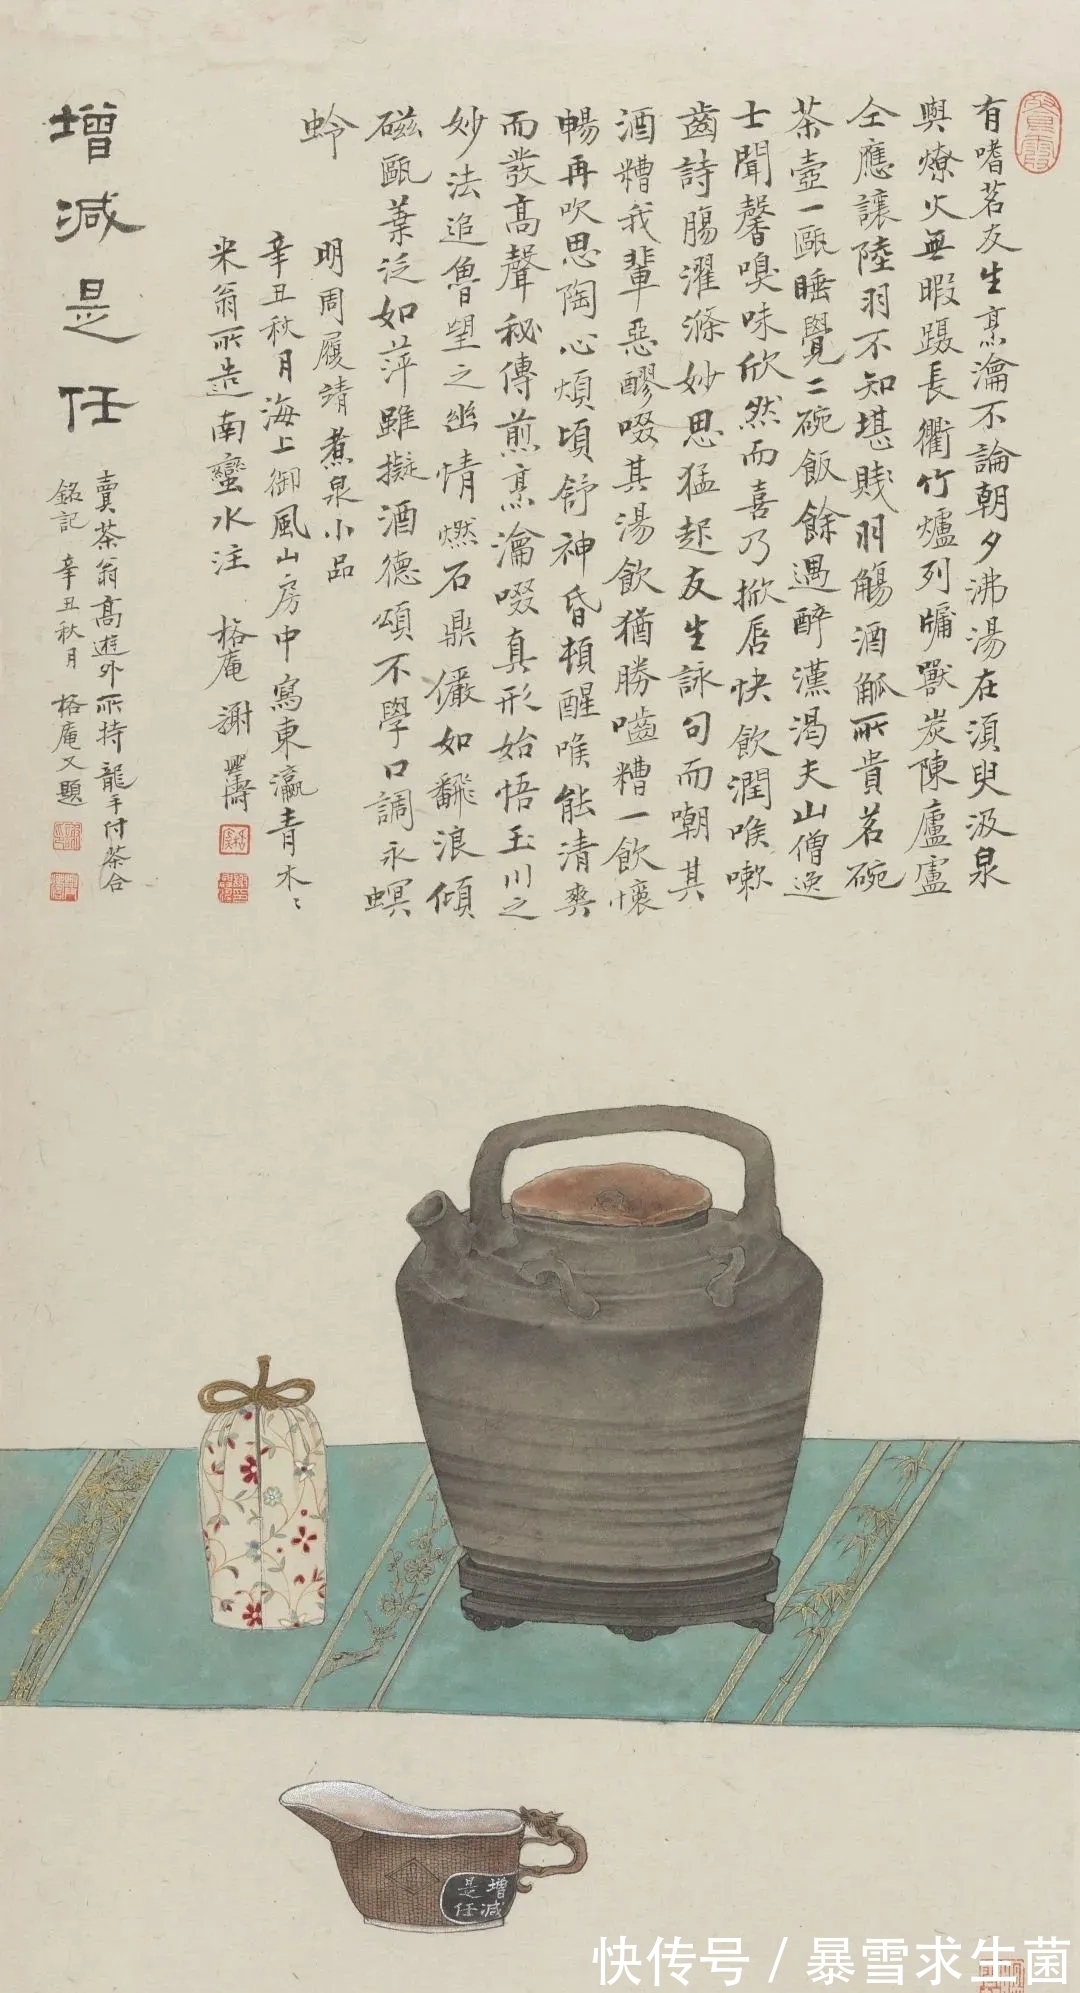 有嗜茗友生烹瀹不論朝夕沸湯在須臾汲泉
與燎火無暇躡長衢竹爐列牖獸炭陳廬盧
仝應讓陸羽不知堪賤羽觴酒觚所貴茗碗
茶壺一甌睡覺二碗飯餘遇醉漢渴夫山僧逸
士聞馨嗅味欣然而喜乃掀唇快飲潤喉嗽
齒詩腸濯滌妙思猛起友生詠句而嘲其
酒糟我輩惡醪啜其湯飲猶勝嚙糟一飲懷
暢再吹思陶心煩頃舒神昏頓醒喉能清爽
而發高聲秘傳煎烹瀹啜真形始悟玉川之
妙法追魯望之幽情燃石鼎儼如翻浪傾
磁甌葉泛如萍雖擬酒德頌不學口調永螟
蛉
明周履靖煮泉小品
辛丑秋月海上御風山房中寫東瀛青木〻
米翁所造南蠻水注 格庵 謝
增減是任
賣茶翁高遊外所持龍手付茶合
銘記 辛丑秋月 格庵又題
增減
是任
快传号 / 暴雪求生菌